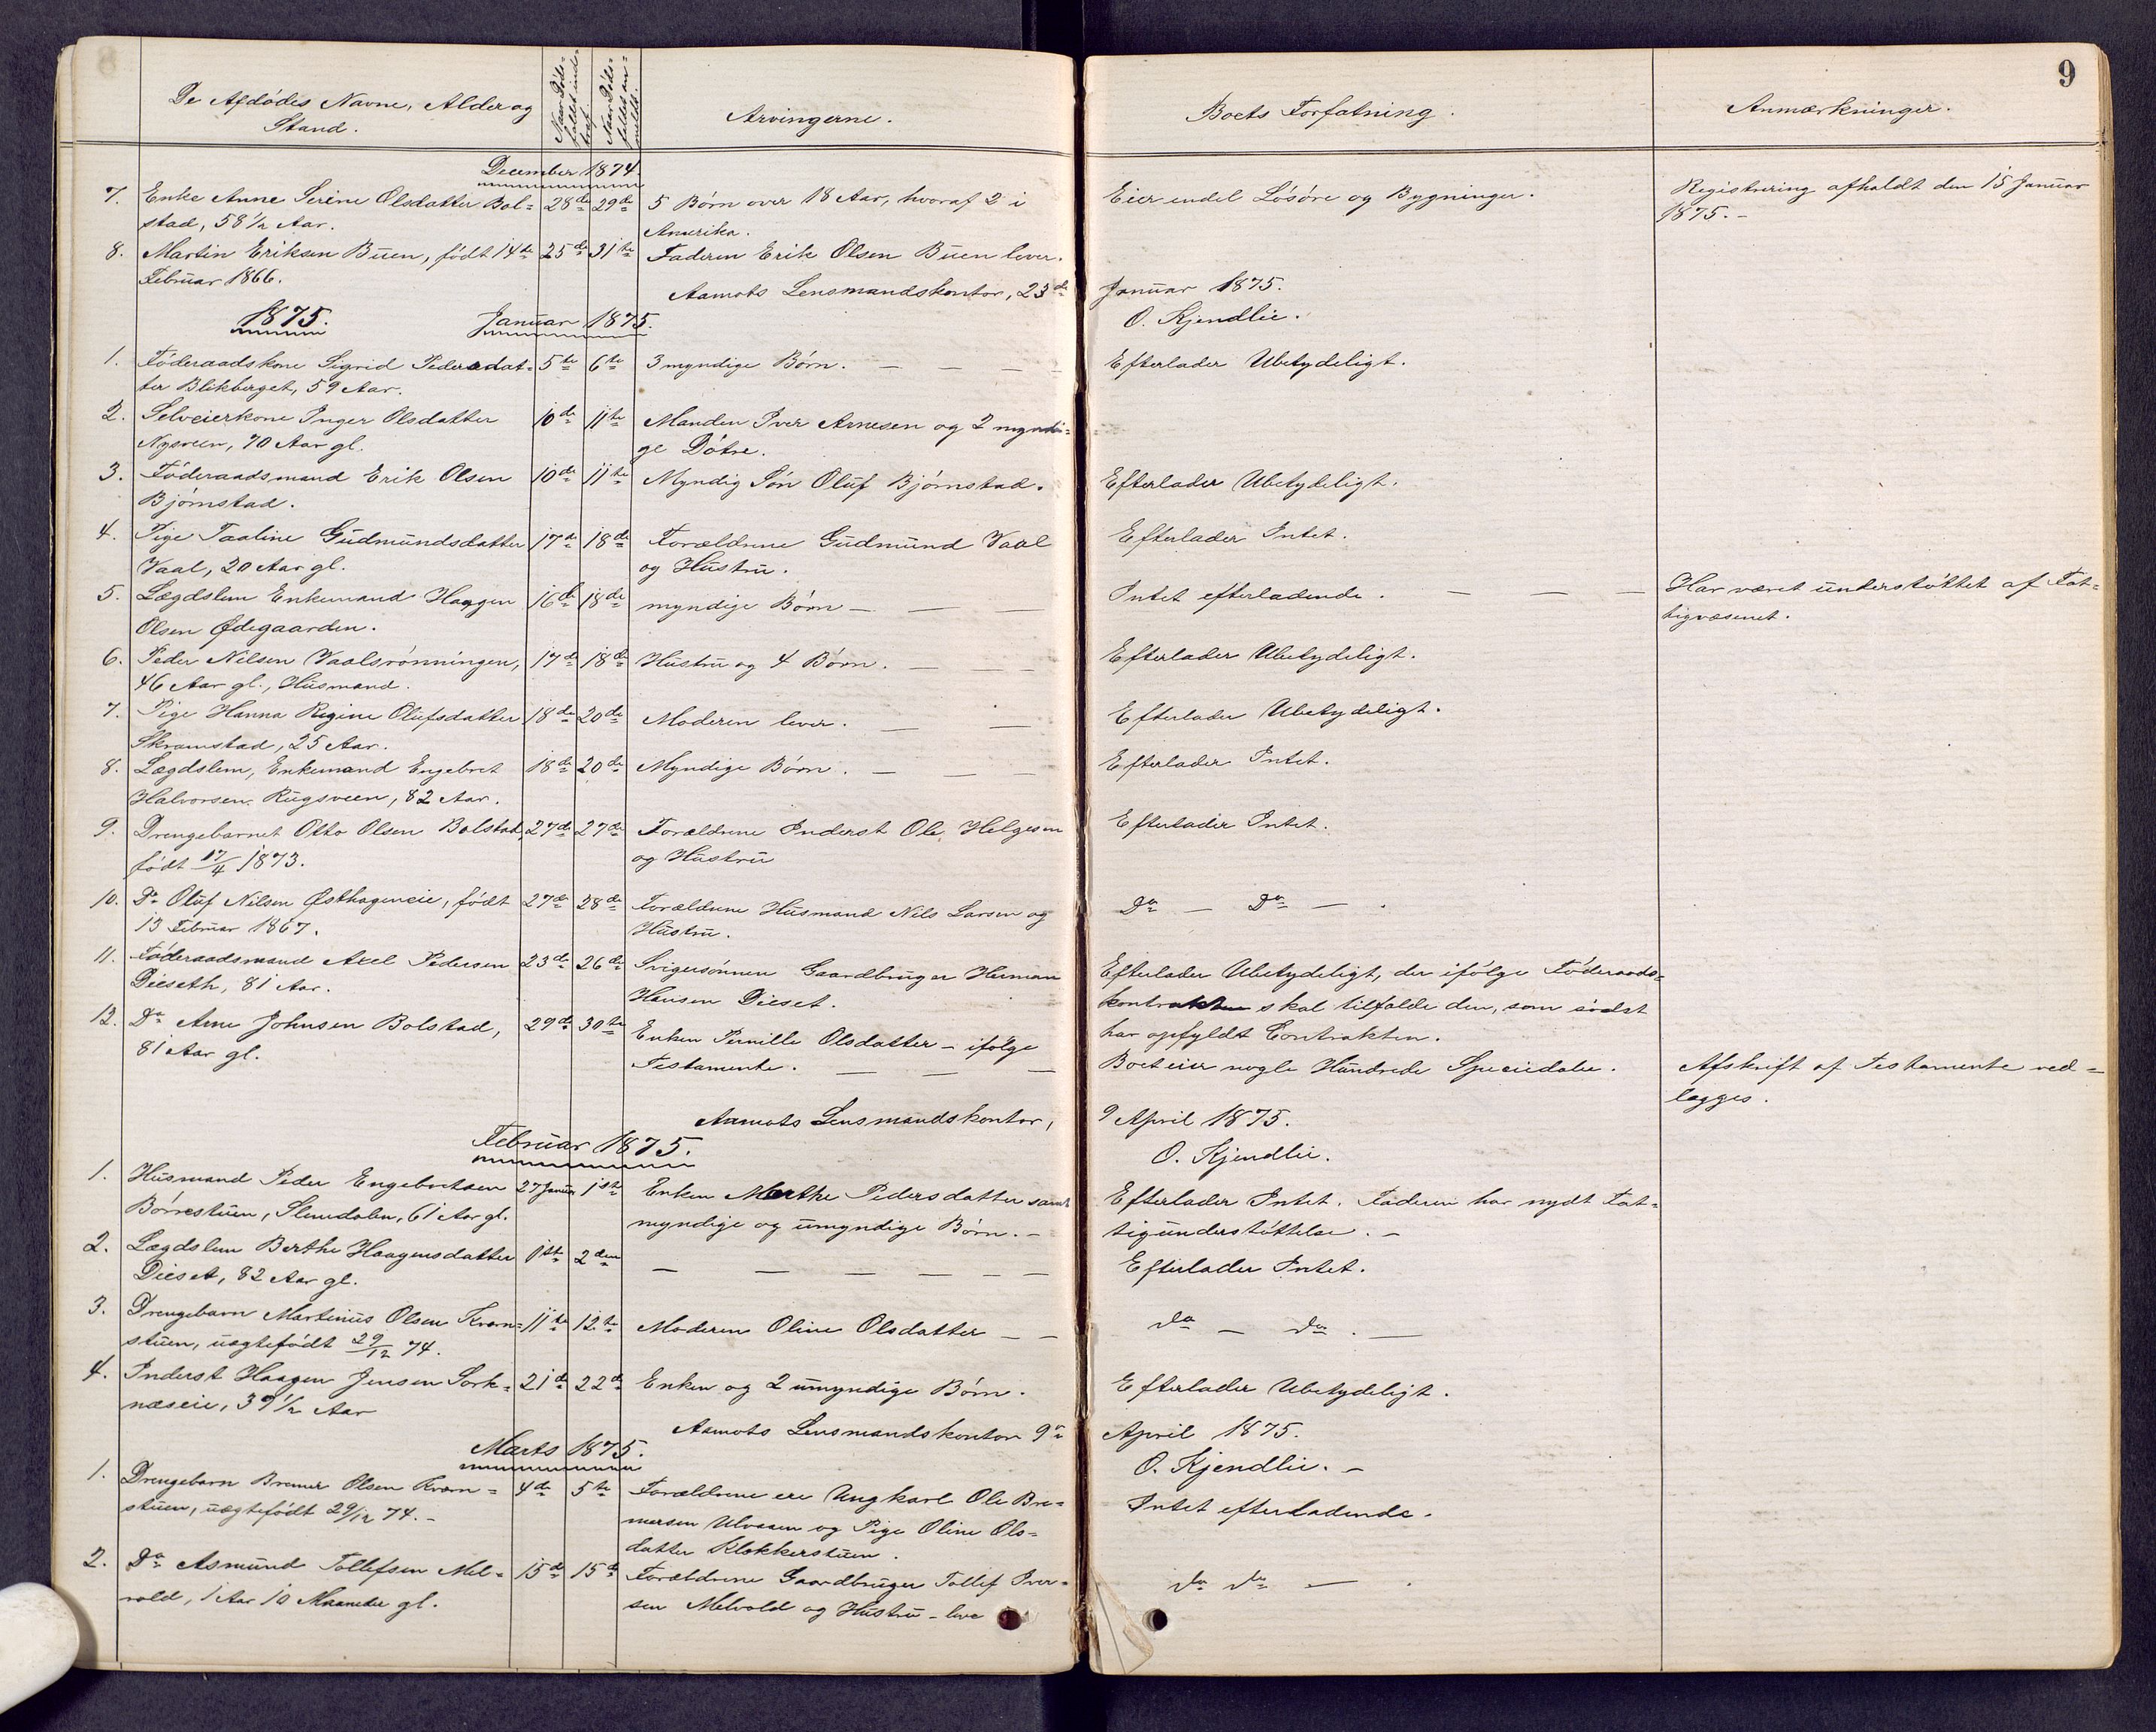 8
9
De Afdødes Navne, Alder og
Stand.
Naar Døds-
faldet ind-
traf.
Naar Døds-
faldet an-
meldt.
Arvingerne.
Boets Forfatning.
Anmærkninger.
December 1874.
7. Enke Anne Serine Olsdatter Bol- 28de 29de 5 Børn over 18 Aar, hvoraf 2 i Eier endel Løsøre og Bygninger. Registrering afholdt den 15 Januar
stad, 58 1/2 Aar. Amerika. 1875.-
8. Martin Eriksen Buen, født 14de 25de 31te Faderen Erik Olsen Buen lever.
Februar 1866.
Aamots Lensmandskontor, 23de Januar 1875.
O. Kjendlie.
1875. Januar 1875.
1. Föderaadskone Sigrid Pedersdat- 5te 6te 3 myndige Børn. — — — Efterlader Ubetydeligt.
ter Blikberget, 59 Aar.
2. Selveierkone Inger Olsdatter 10de 11te Manden Iver Arnesen og 2 myndi-
Nysveen, 70 Aar gl. ge Døtre.
3. Föderaadsmand Erik Olsen 10de 11te Myndig Søn Oluf Bjørnstad. Efterlader Ubetydeligt.
Bjørnstad.
4. Pige Taaline Gudmundsdatter 17de 18de Forældrene Gudmund Vaal Efterlader Intet.
Vaal, 20 Aar gl. og Hustru.
5. Lægdslem Enkemand Haagen 16de 18de myndige Børn — — — Intet efterladende. — — — Har været understøttet af Fat-
Olsen Ødegaarden. tigvæsenet.
6. Peder Nilsen Vaalsrønningen, 17de 18de Hustru og 4 Børn. — — Efterlader Ubetydeligt.
46 Aar gl., Husmand.
7. Pige Hanna Regine Olufsdatter 18de 20de Moderen lever. — — Efterlader Ubetydeligt.
Skramstad, 25 Aar.
8. Lægdslem, Enkemand Engebret 18de 20de Myndige Børn. — — — Efterlader Intet.
Halvorsen Rugsveen, 82 Aar.
9. Drengebarnet Otto Olsen Bolstad, 27de 27de Forældrene Inderst Ole Helgesen Efterlader Intet.
født 17/4 1873. og Hustru
10. Do Oluf Nilsen Østhageneie, født 27de 28de Forældrene Husmand Nils Larsen og Do — Do — .
13 Februar 1867. Hustru.
11. Föderaadsmand Axel Pedersen 23de 26de Svigersønnen Gaardbruger Herman Efterlader Ubetydeligt, der ifølge Föderaads-
Dieseth, 81 Aar. Hansen Dieset. kontrakten skal tilfalde den, som sidst
har opfyldt Contrakten.
12. Do Arne Johnsen Bolstad, 29de 30te Enken Pernille Olsdatter - ifølge
81 Aar gl. Testamente. — — — Boet eier nogle Hundrede Speciedaler. Afskrift af Testamente ved-
lægges.
Aamots Lensmandskontor, 9 April 1875.
O. Kjendlie.
Februar 1875.
1. Husmand Peder Engebretsen 27 Januar 1ste Enken Marthe Pedersdatter samt Efterlader Intet. Faderen har nydt Fat-
Børrestuen, Slemdalen, 61 Aar gl. myndige og umyndige Børn. - tigunderstøttelse. -
2. Lægdslem Berthe Haagensdatter 1ste 2den — — — — — — Efterlader Intet.
Dieset, 82 Aar gl.
3. Drengebarn Martinius Olsen Kværn- 11te 12te Moderen Oline Olsdatter — — do — do. —
stuen, uægtefødt 29/12 74.
4. Inderst Haagen Jensen Sork- 21de 22de Enken og 2 umyndige Børn. Efterlader Ubetydeligt.
næseie, 39 1/2 Aar
Aamots Lensmandskontor 9de April 1875.
O. Kjendlie. -
Marts 1875.
1. Drengebarn Bremer Olsen Kværn- 4de 5te Forældrene ere Ungkarl Ole Bre- Intet efterladende.
stuen, uægtefødt 29/12 74. - mersen Ulvaaen og Pige Oline Ols-
datter Klokkerstuen.
2. Do Asmund Tollefsen Mel- 15de 15de Forældrene Gaardbruger Tollef Iver- do do — .
vold, 1 Aar 10 Maaneder gl. sen Melvold og Hustru - leve